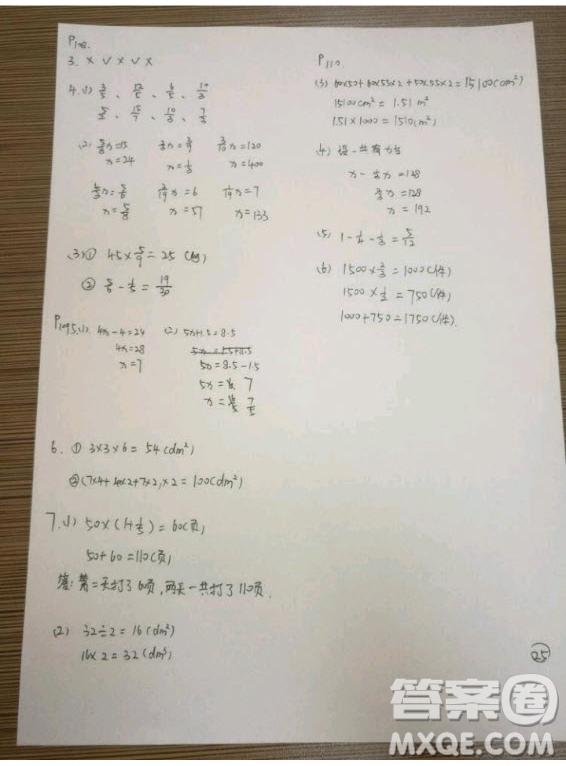 P108.
3. × √ × √ ×
4.(1) 3/5、12/5、6/5、10/3
15/7、10/3、7/3
(2) x=15 x= x=120
x=24 x= x=400
x= x=6 x=7
x=5/8 x=57 x=133
(3)① 45×5/9=25
② 5/6-1/5=19/30
P109 5.(1) 4x-4=24 (2) 5x+1.5=8.5
4x=28
x=7 5x=8.5-1.5
5x=7
x=7/5
6. ① 3×3×6=54(dm²)
②(7×4+4×2+7×2)×2=100(dm²)
7.(1) 50×(1+1/5)=60(页)
50+60=110(页)
答:第二天打了60页,两天一共打了110页.
(2) 32÷2=16(dm²)
16×2=32(dm³)
P110.
(3) 60×50+60×55×2+50×55×2=15100(cm²)
15100cm²=1.51m²
1.51×1000=1510(m²)
(4) 设一共有
x-1/3x=128
2/3x=128
x=192
(5) 1-1/4-1/3=5/12
(6) 1500×2/3=1000(件)
1500×1/2=750(件)
1000+750=1750(件).
25
答案圈
MXQE.COM